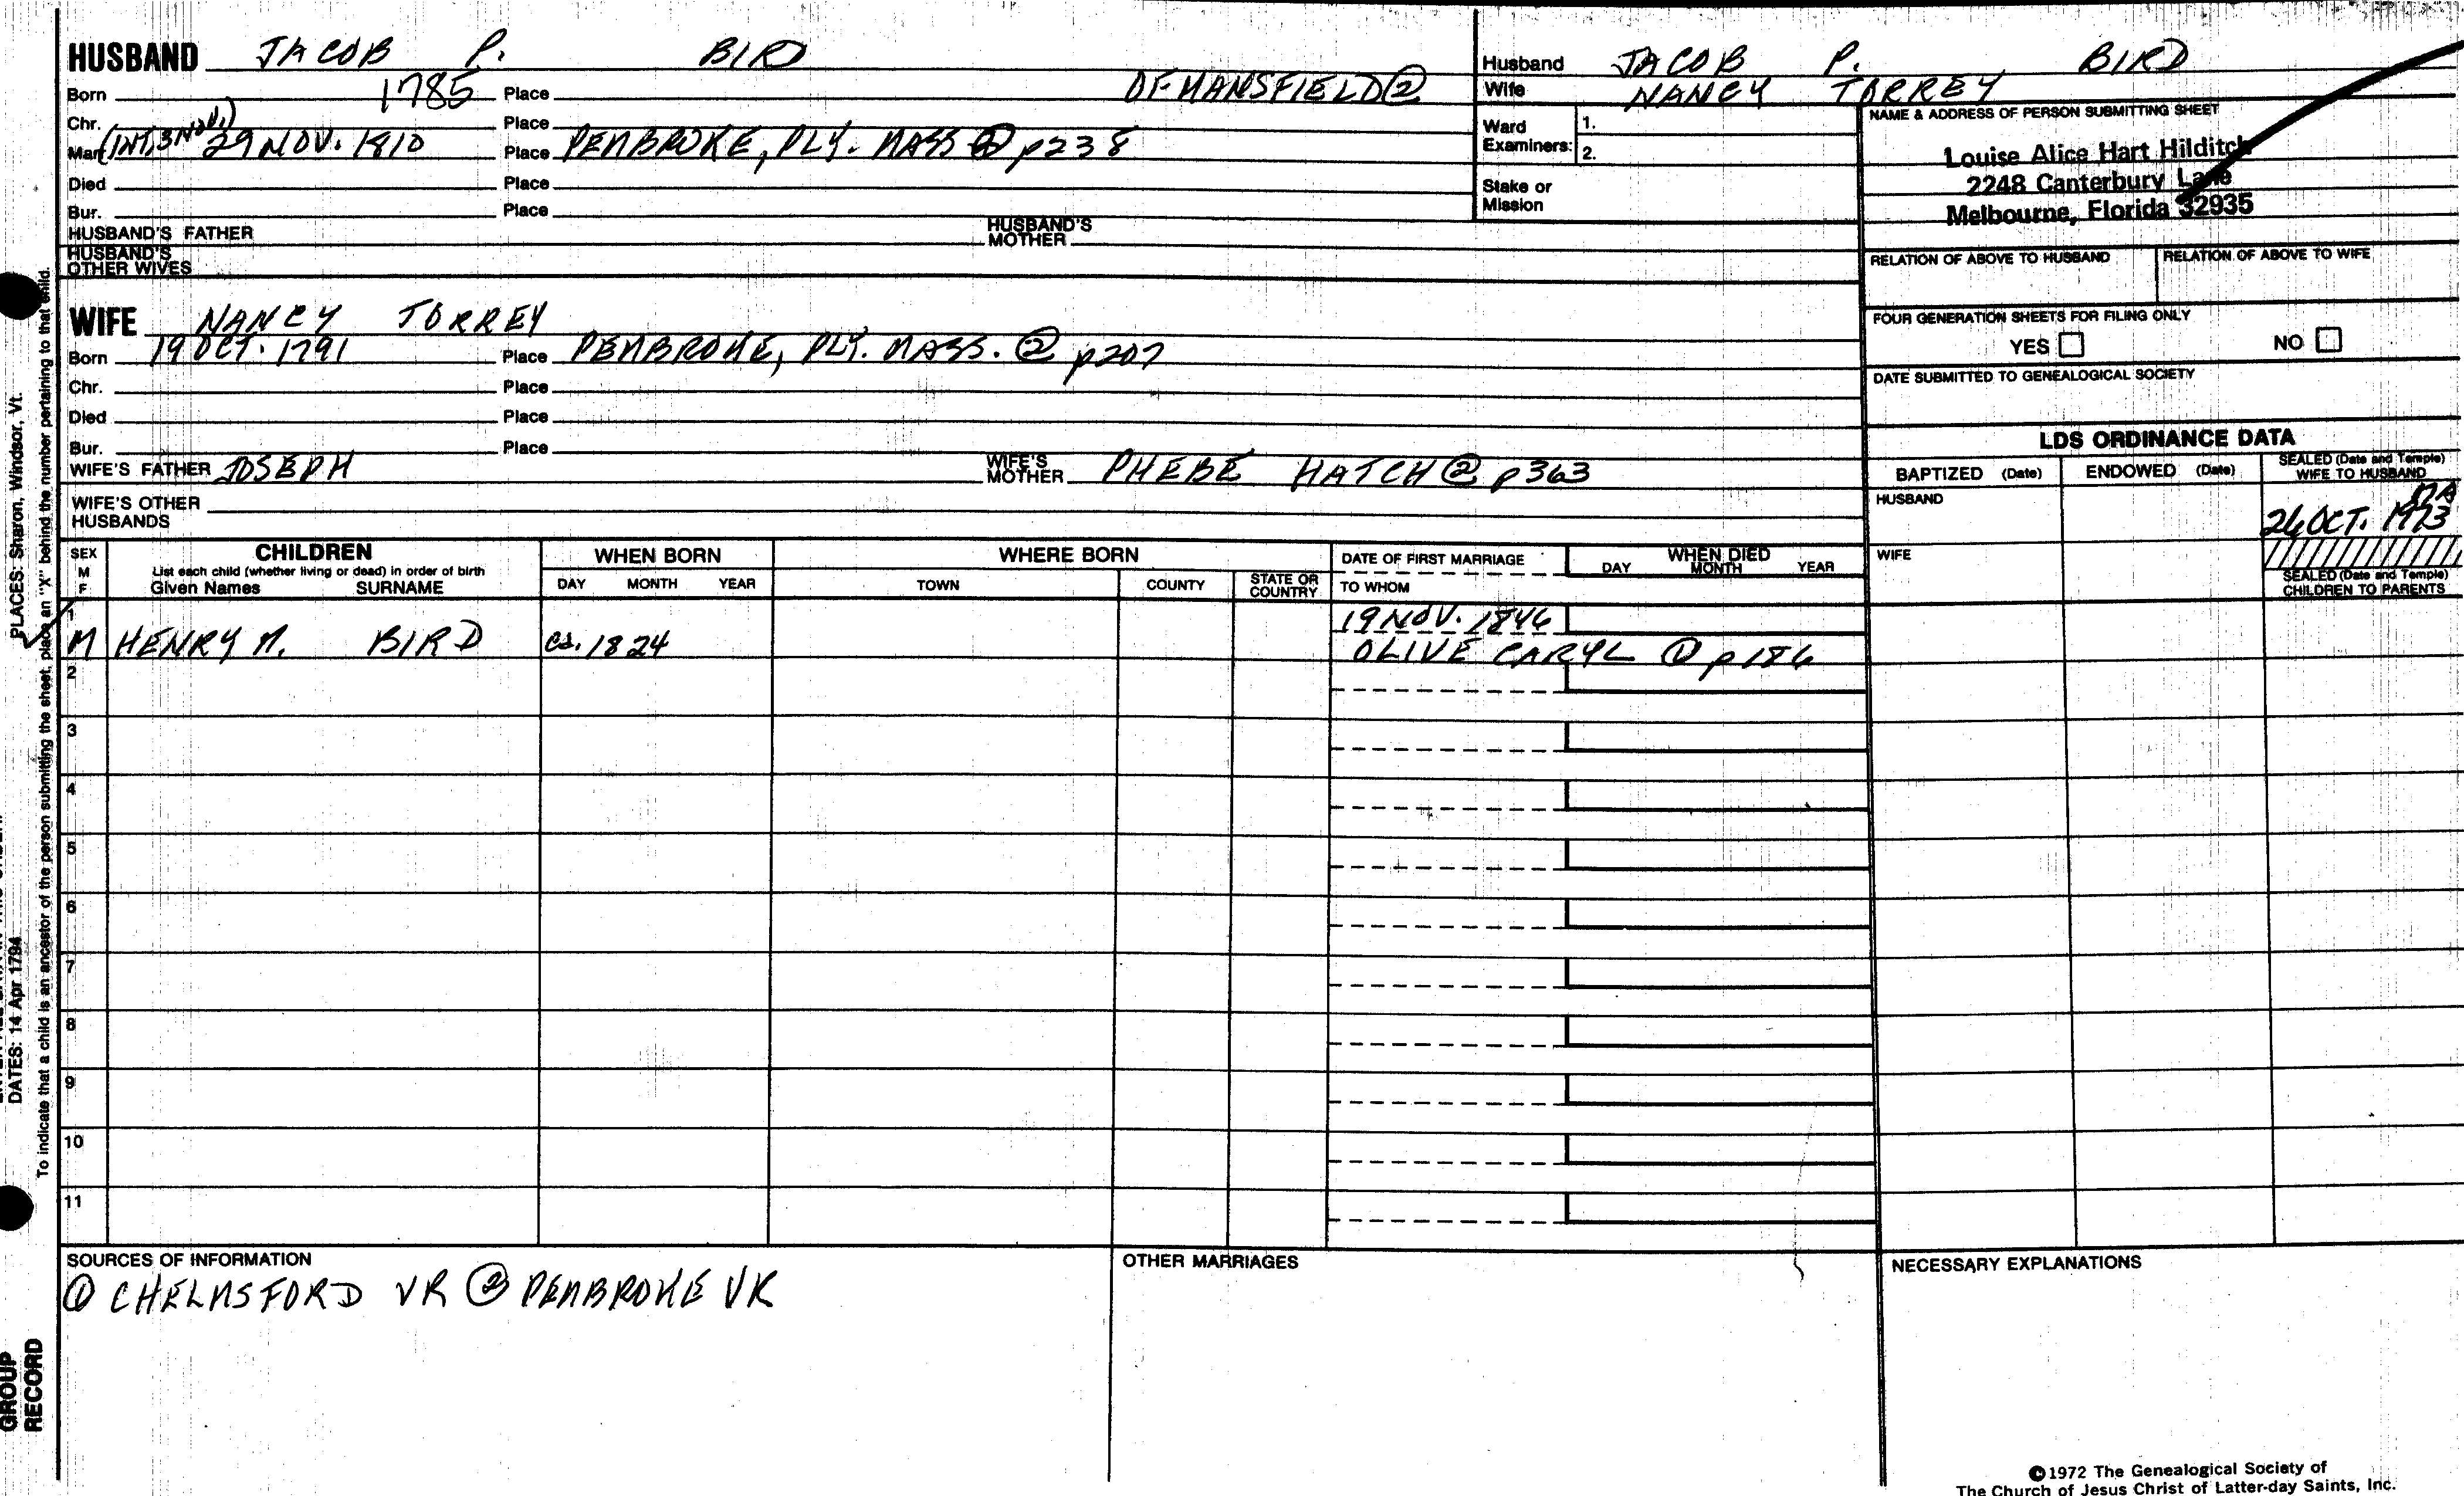 HUSBAND JACOB P. BIRD
Born 1785 Place OF MANSFIELD ②
Chr. Place
Marr. (INT. 3 NOV.) 29 NOV. 1810 Place PEMBROKE, PLY. MASS ② p238
Died Place
Bur. Place
HUSBAND'S FATHER HUSBAND'S MOTHER
HUSBAND'S OTHER WIVES
WIFE NANCY TORREY
Born 19 OCT. 1791 Place PEMBROKE, PLY. MASS. ② p207
Chr. Place
Died Place
Bur. Place
WIFE'S FATHER JOSEPH WIFE'S MOTHER PHEBE HATCH ② p363
WIFE'S OTHER HUSBANDS
Husband JACOB P. BIRD
Wife NANCY TORREY
Ward Examiners: 1.
2.
Stake or Mission
NAME & ADDRESS OF PERSON SUBMITTING SHEET
Louise Alice Hart Hilditch
2248 Canterbury Lane
Melbourne, Florida 32935
RELATION OF ABOVE TO HUSBAND RELATION OF ABOVE TO WIFE
FOUR GENERATION SHEETS FOR FILING ONLY
YES NO
DATE SUBMITTED TO GENEALOGICAL SOCIETY
LDS ORDINANCE DATA
BAPTIZED (Date) ENDOWED (Date) SEALED (Date and Temple) WIFE TO HUSBAND
HUSBAND
26 OCT. 1973
WIFE
SEALED (Date and Temple) CHILDREN TO PARENTS
SEX M F CHILDREN WHEN BORN WHERE BORN DATE OF FIRST MARRIAGE WHEN DIED
List each child (whether living or dead) in order of birth
Given Names SURNAME DAY MONTH YEAR TOWN COUNTY STATE OR COUNTRY TO WHOM DAY MONTH YEAR
1 19 NOV. 1846
M HENRY M. BIRD ca. 1824 OLIVE CARYL ① p186
2
3
4
5
6
7
8
9
10
11
SOURCES OF INFORMATION
① CHELMSFORD VR ② PEMBROKE VR
OTHER MARRIAGES
NECESSARY EXPLANATIONS
©1972 The Genealogical Society of
The Church of Jesus Christ of Latter-day Saints, Inc.
PLACES: Sharon, Windsor, Vt.
DATES: 14 Apr 1794
To indicate that a child is an ancestor of the person submitting the sheet, place an "X" behind the number pertaining to that child.
GROUP
RECORD